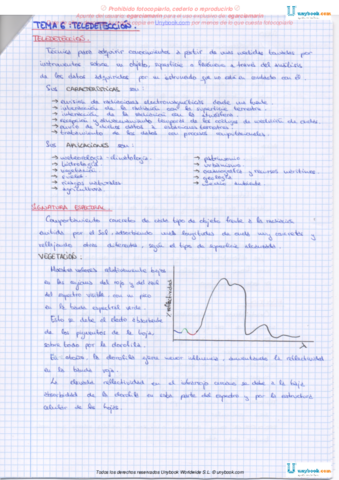 Prohibido fotocopiarlo, venderlo o reproducirlo
unybook.com
TEMA 6: TELEDETECCIÓN.
TELEDETECCIÓN:
Técnica para adquirir conocimientos a partir de una medidas tomadas por
instrumentos sobre un objeto, superficie o fenómeno a través del análisis
de los datos adquiridos por un instrumento que no está en contacto con él.
Sus CARACTERÍSTICAS son:
→ emisión de radiaciones electromagnéticas desde una fuente
→ interacción de la radiación con la superficie terrestre.
→ interacción de la radiación con la atmósfera.
→ recepción y
→ tratamiento de los datos con procesos computacionales.
Sus APLICACIONES son:
→ meteorología - climatología
→ hidrología
→ vegetación
→ suelos
→ riesgos naturales
→ agricultura
→ patrimonio
→ urbanismo
→ oceanografía y recursos marítimos.
→ geología
→ medio ambiente
SIGNATURA ESPECTRAL:
Comportamiento concreto de cada tipo de objeto frente a la radiación
emitida por el Sol, absorbiendo unas longitudes de onda muy concretas y
reflejando otras diferentes, según el tipo de superficie alcanzada.
VEGETACIÓN:
Muestra valores relativamente bajos
en las regiones del rojo y del azul
del espectro visible, con un pico
en la banda espectral verde.
Esto se debe al efecto absorbente
de los pigmentos de la hoja,
sobre todo por la clorofila.
reflectividad
λ
la clorofila ejerce menor influencia, aumentando la reflectividad
en la banda roja.
La elevada reflectividad en el infrarrojo cercano se debe a la baja
absortividad de la clorofila en esta parte del espectro y por la estructura
celular de las hojas.
Todos los derechos reservados Unybook Worldwide S.L. © unybook.com
unybook.com